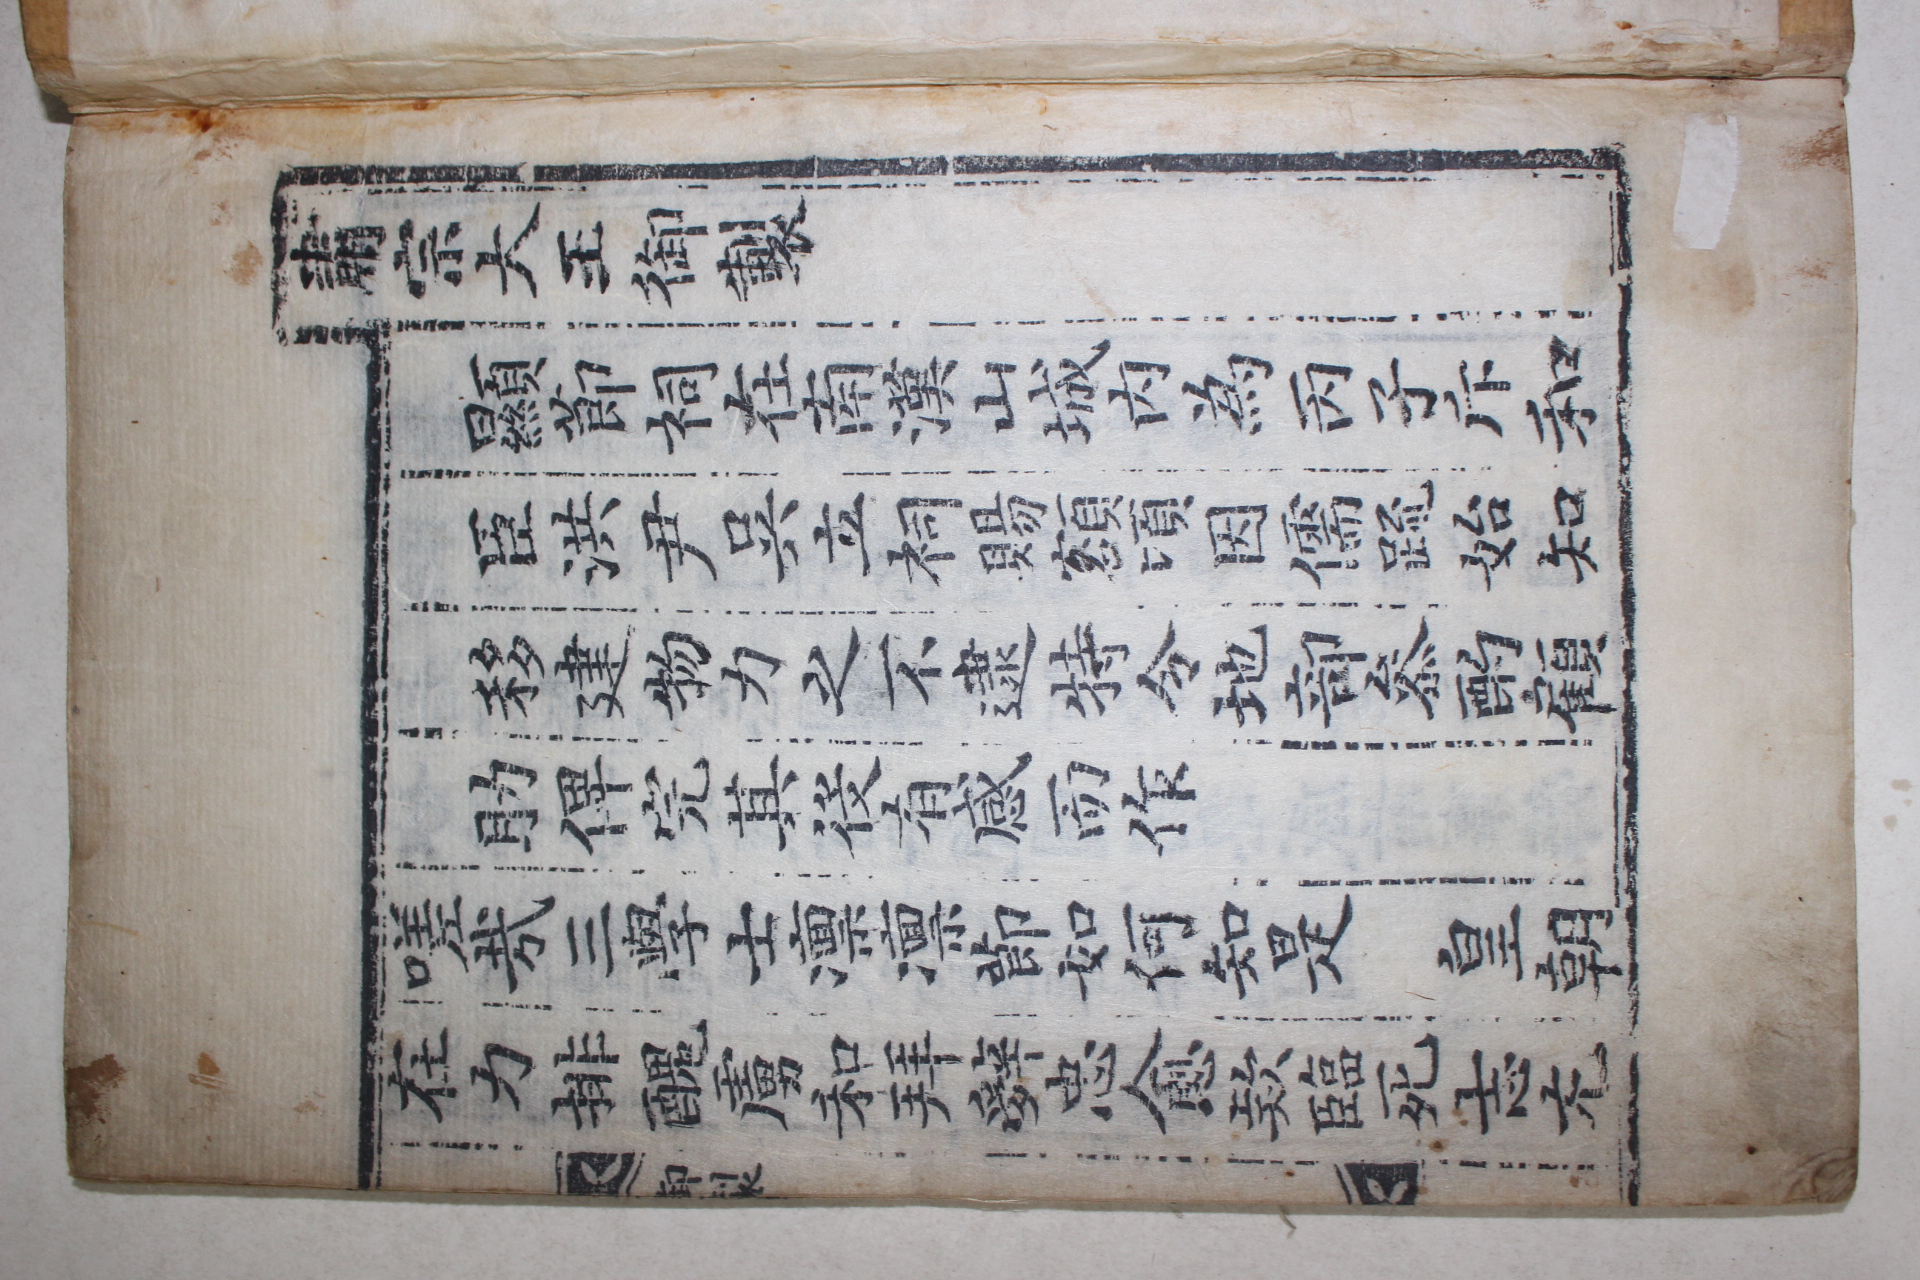 肅宗大王御製
顯節祠在南漢山城內為丙子斥和
臣洪尹吳立祠賜額頃因儒疏始知
移建物力之不逮特令地部參酌顧
助俾完其後有感而作
嗟哉三學士凛凛節如何知是　皇朝
在力排醜虜和拜辭忠愈欵臨死志尤
御製